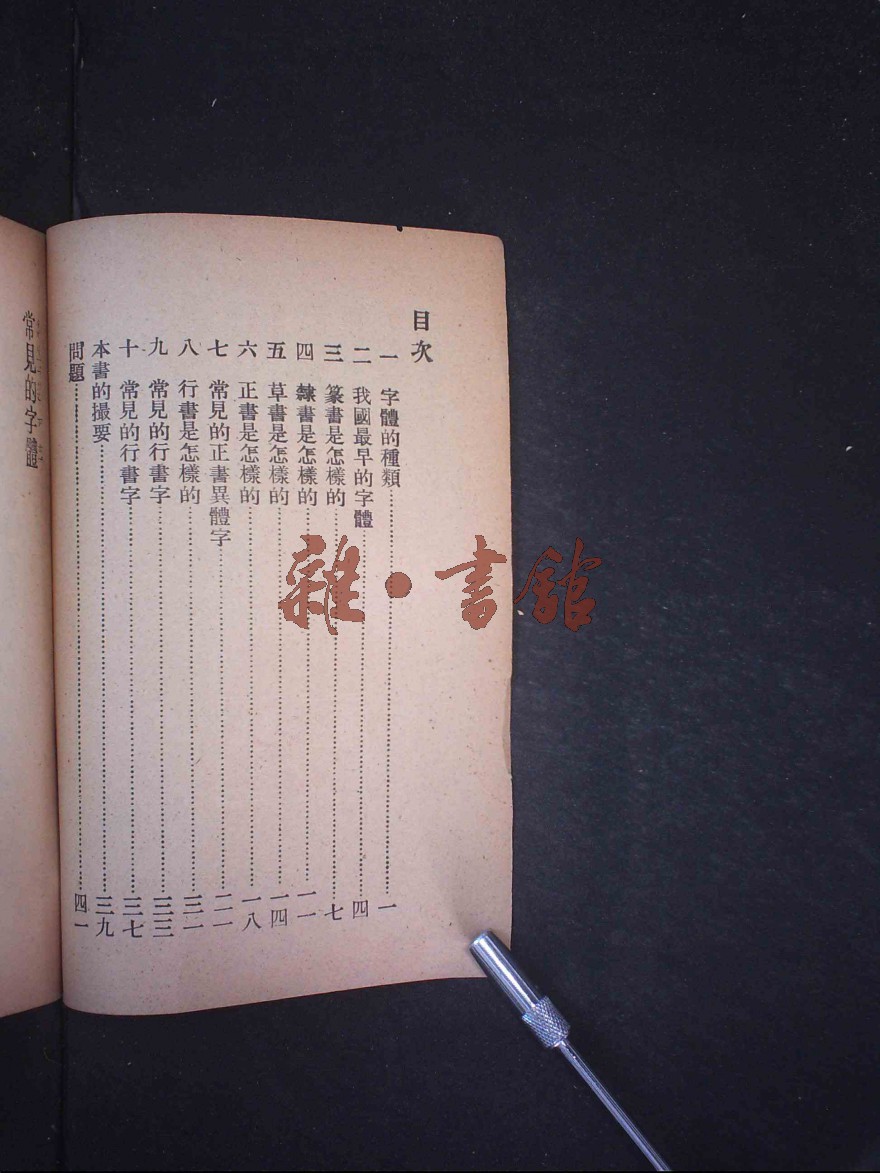 目次
一 字體的種類……一
二 我國最早的字體……四
三 篆書是怎樣的……七
四 隸書是怎樣的……一一
五 草書是怎樣的……一四
六 正書是怎樣的……一八
七 常見的正書異體字……二一
八 行書是怎樣的……三一
九 常見的行書字……三三
十 常見的行書字……三七
本書的撮要……三九
問題……四一
常見的字體
雜·書館